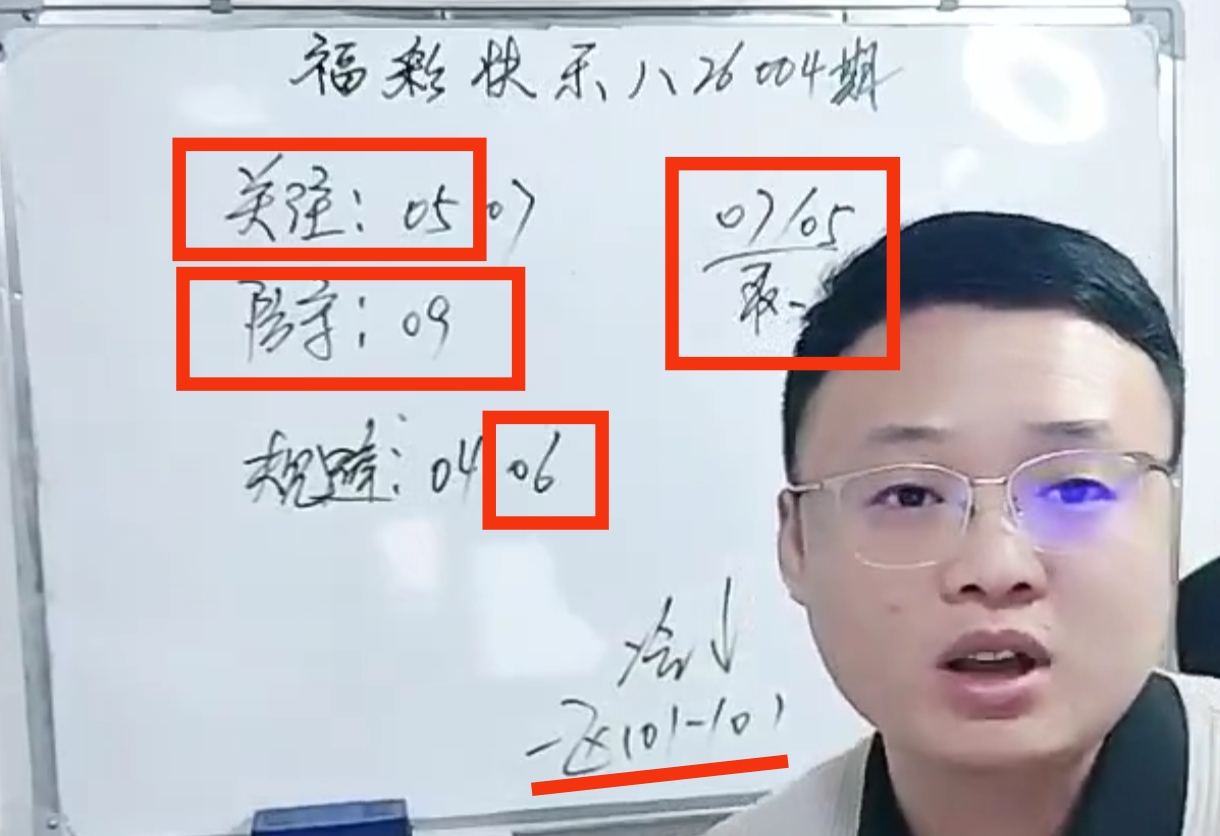 福彩快乐八26004期
关注：05 07
07/05
防守：09
取一
规避：04 06
冷↓
一区(01-10)